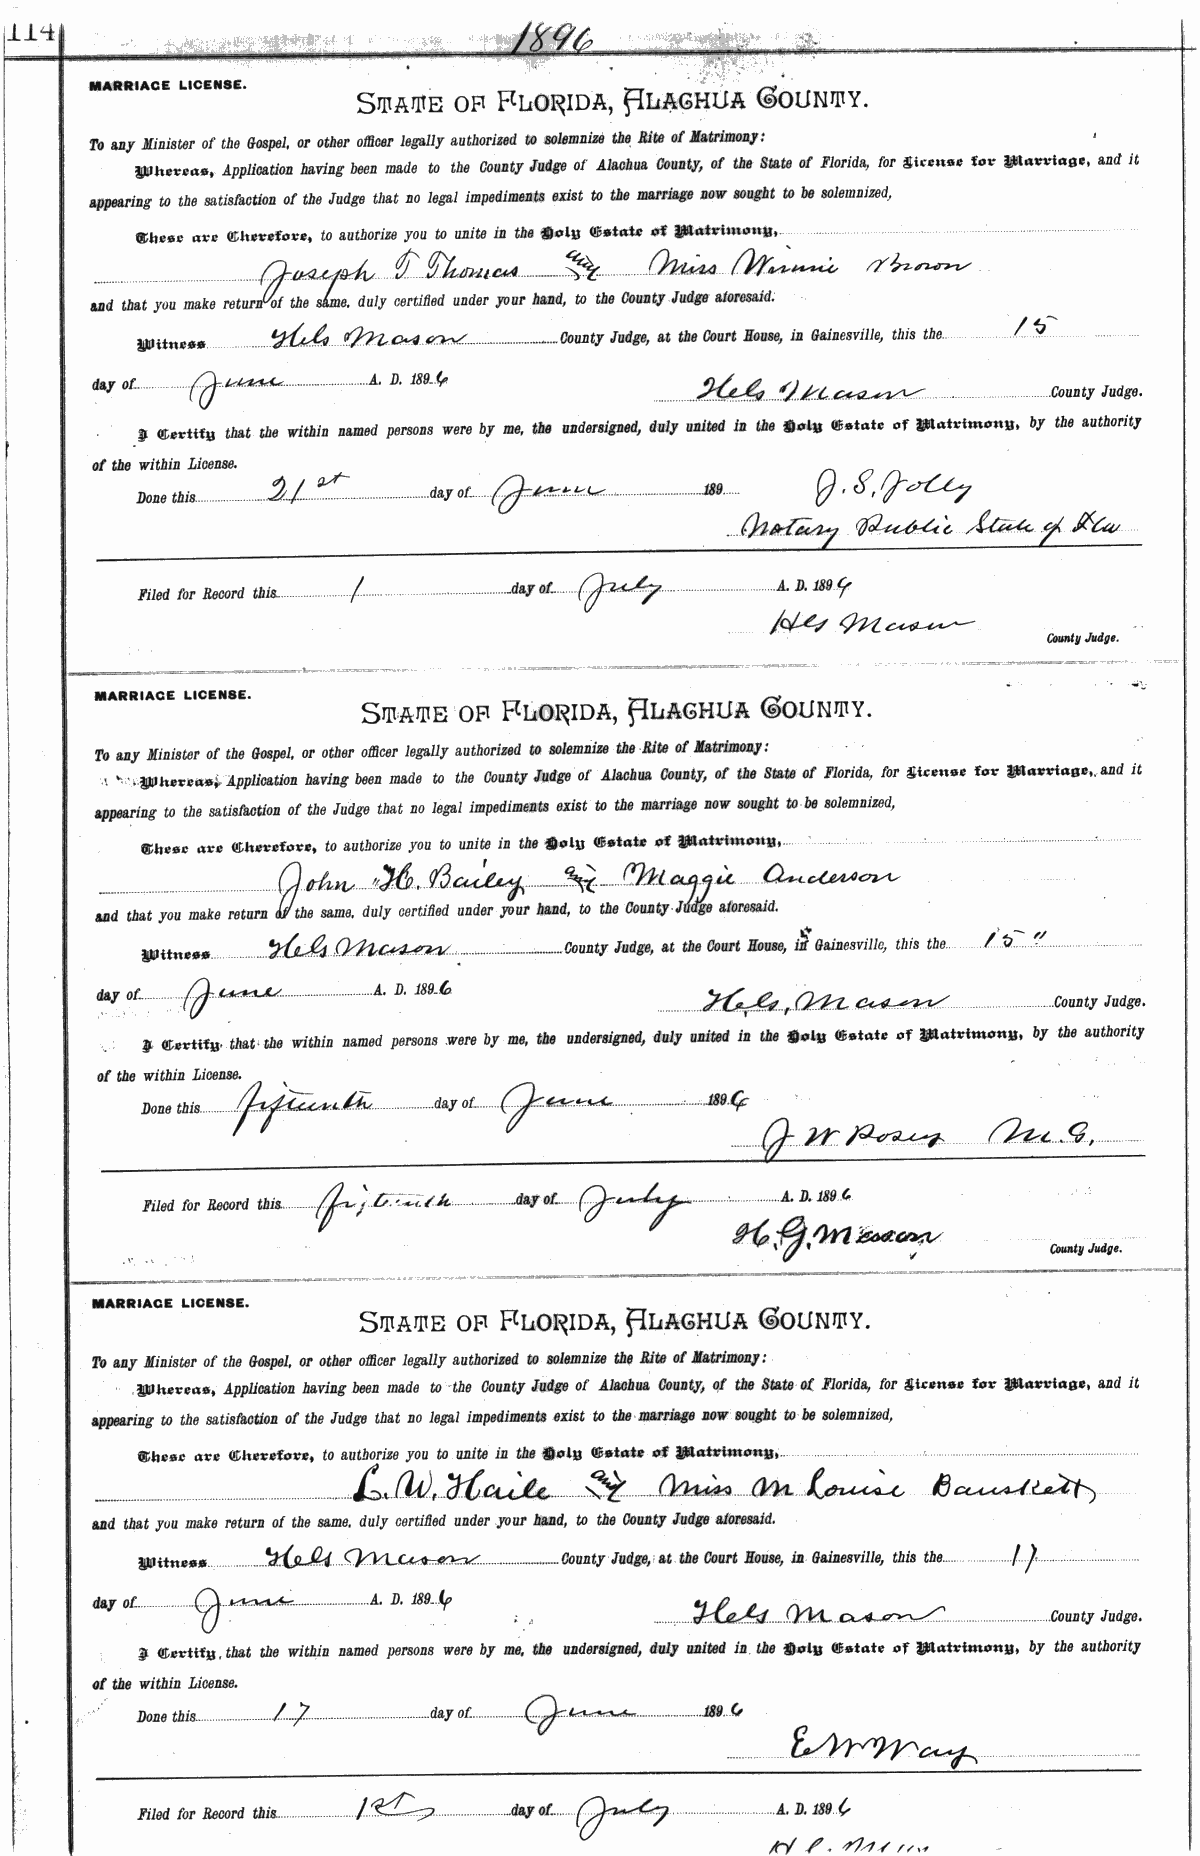 114
1896
MARRIAGE LICENSE.
STATE OF FLORIDA, ALACHUA COUNTY.
To any Minister of the Gospel, or other officer legally authorized to solemnize the Rite of Matrimony:
Whereas, Application having been made to the County Judge of Alachua County, of the State of Florida, for License for Marriage, and it
appearing to the satisfaction of the Judge that no legal impediments exist to the marriage now sought to be solemnized,
These are Therefore, to authorize you to unite in the Holy Estate of Matrimony,
Joseph T Thomas and Miss Winnie Brown
and that you make return of the same, duly certified under your hand, to the County Judge aforesaid.
Witness Mason County Judge, at the Court House, in Gainesville, this the 15
day of June A. D. 1896 Mason County Judge.
I Certify that the within named persons were by me, the undersigned, duly united in the Holy Estate of Matrimony, by the authority
of the within License.
Done this 21st day of June 189 J. S. Jolly
Notary Public State of Fla
Filed for Record this 1 day of July A. D. 1896
Mason
County Judge.
MARRIAGE LICENSE.
STATE OF FLORIDA, ALACHUA COUNTY.
To any Minister of the Gospel, or other officer legally authorized to solemnize the Rite of Matrimony:
Whereas, Application having been made to the County Judge of Alachua County, of the State of Florida, for License for Marriage, and it
appearing to the satisfaction of the Judge that no legal impediments exist to the marriage now sought to be solemnized,
These are Therefore, to authorize you to unite in the Holy Estate of Matrimony,
John H. Bailey and Maggie Anderson
and that you make return of the same, duly certified under your hand, to the County Judge aforesaid.
Witness Mason County Judge, at the Court House, in Gainesville, this the 15"
day of June A. D. 1896 Mason County Judge.
I Certify that the within named persons were by me, the undersigned, duly united in the Holy Estate of Matrimony, by the authority
of the within License.
Done this fifteenth day of June 1896
J W M. G.
Filed for Record this fifteenth day of July A. D. 1896
H. G. Mason
County Judge.
MARRIAGE LICENSE.
STATE OF FLORIDA, ALACHUA COUNTY.
To any Minister of the Gospel, or other officer legally authorized to solemnize the Rite of Matrimony:
Whereas, Application having been made to the County Judge of Alachua County, of the State of Florida, for License for Marriage, and it
appearing to the satisfaction of the Judge that no legal impediments exist to the marriage now sought to be solemnized,
These are Therefore, to authorize you to unite in the Holy Estate of Matrimony,
L. W. Haile and Miss M Louise Bauskett
and that you make return of the same, duly certified under your hand, to the County Judge aforesaid.
Witness Mason County Judge, at the Court House, in Gainesville, this the 17
day of June A. D. 1896 Mason County Judge.
I Certify, that the within named persons were by me, the undersigned, duly united in the Holy Estate of Matrimony, by the authority
of the within License.
Done this 17 day of June 1896
E W Way
Filed for Record this 1st day of July A. D. 1896